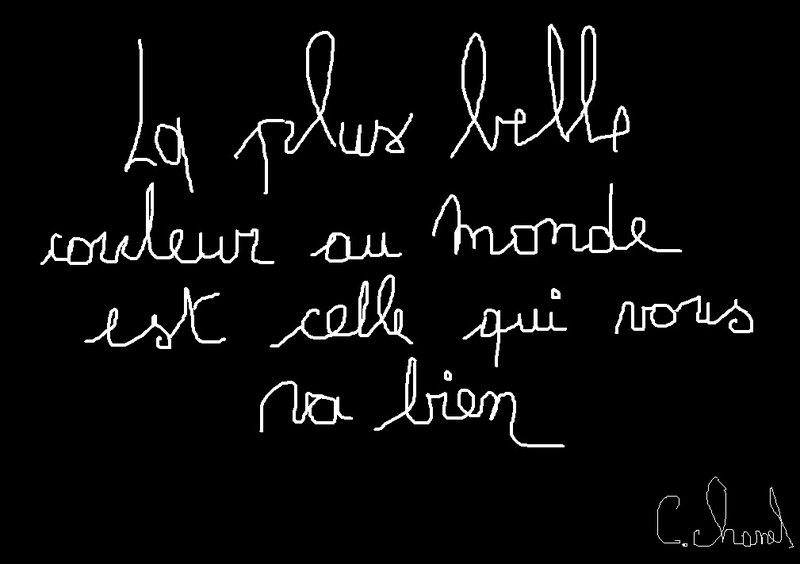 La plus belle
couleur au monde
est celle qui vous
va bien
C. Chanel